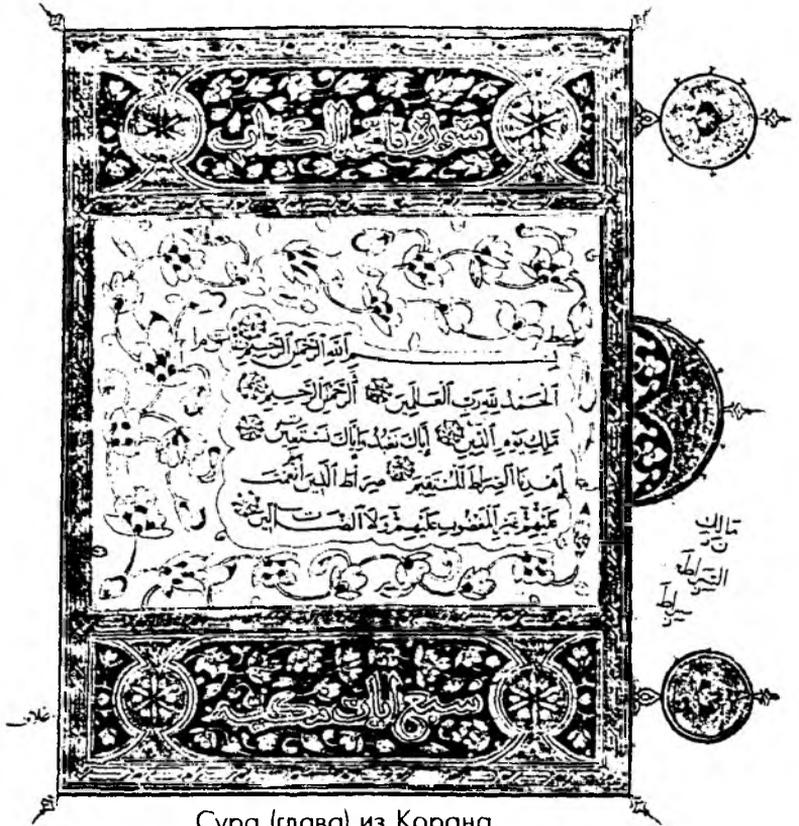 سورة فاتحة الكتاب
بِسْمِ اللَّهِ الرَّحْمَٰنِ الرَّحِيمِ
الْحَمْدُ لِلَّهِ رَبِّ الْعَالَمِينَ الرَّحْمَٰنِ الرَّحِيمِ
مَلِكِ يَوْمِ الدِّينِ إِيَّاكَ نَعْبُدُ وَإِيَّاكَ نَسْتَعِينُ
اهْدِنَا الصِّرَاطَ الْمُسْتَقِيمَ صِرَاطَ الَّذِينَ أَنْعَمْتَ
عَلَيْهِمْ غَيْرِ الْمَغْضُوبِ عَلَيْهِمْ وَلَا الضَّالِّينَ
مالك
السراط
سراط
سبع آيات مكية
Сура (глава) из Корана